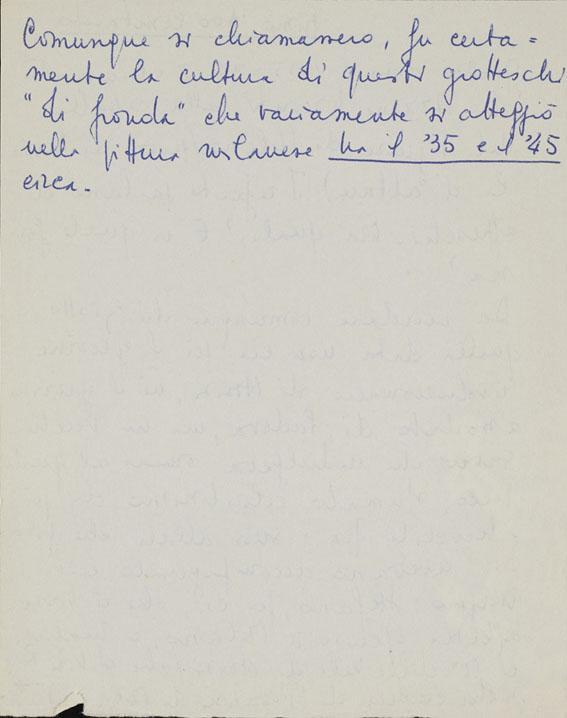 Comunque si chiamassero, fu certa=
mente la cultura di questi grotteschi
"di fronda" che variamente si atteggiò
nella pittura milanese tra il '35 e il '45
circa.